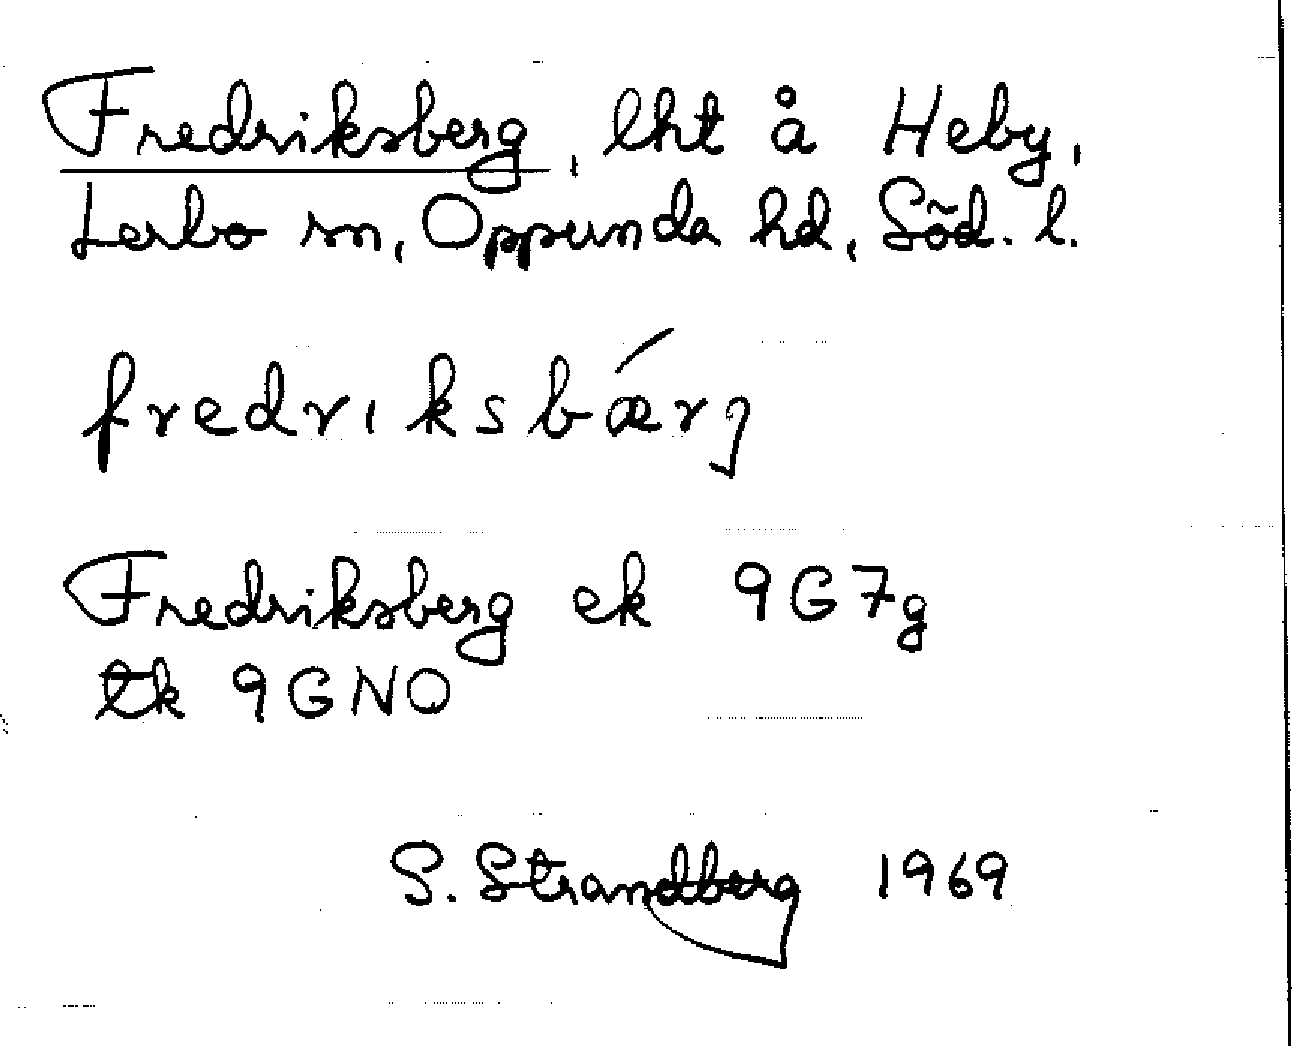 Fredriksberg, lht å Heby,
Lerbo sn, Oppunda hd, Söd. l.
fredrıksbǽrj
Fredriksberg ek 9G7g
tk 9GNO
S. Strandberg 1969